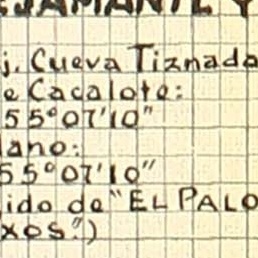 EJAMANTE Y
j. Cueva Tiznada
e Cacalote:
55°07'10"
lano:
55°07'10"
ido de "EL PALO
xos".)